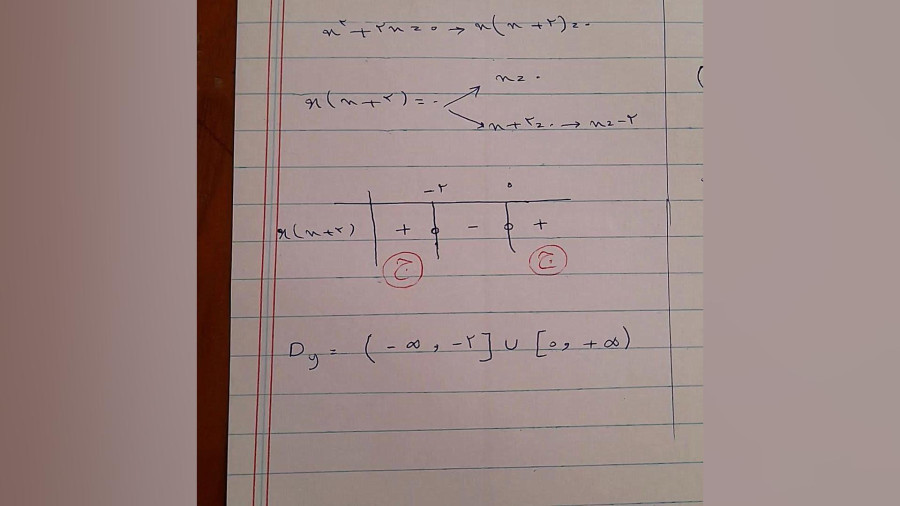 x² + ۲x = ۰ → x(x + ۲) = ۰
x = ۰
x(x + ۲) = ۰
x + ۲ = ۰ → x = -۲
-۲ ۰
x(x + ۲) + - +
ج ج
Dy = (-∞, -۲] ∪ [۰, +∞)